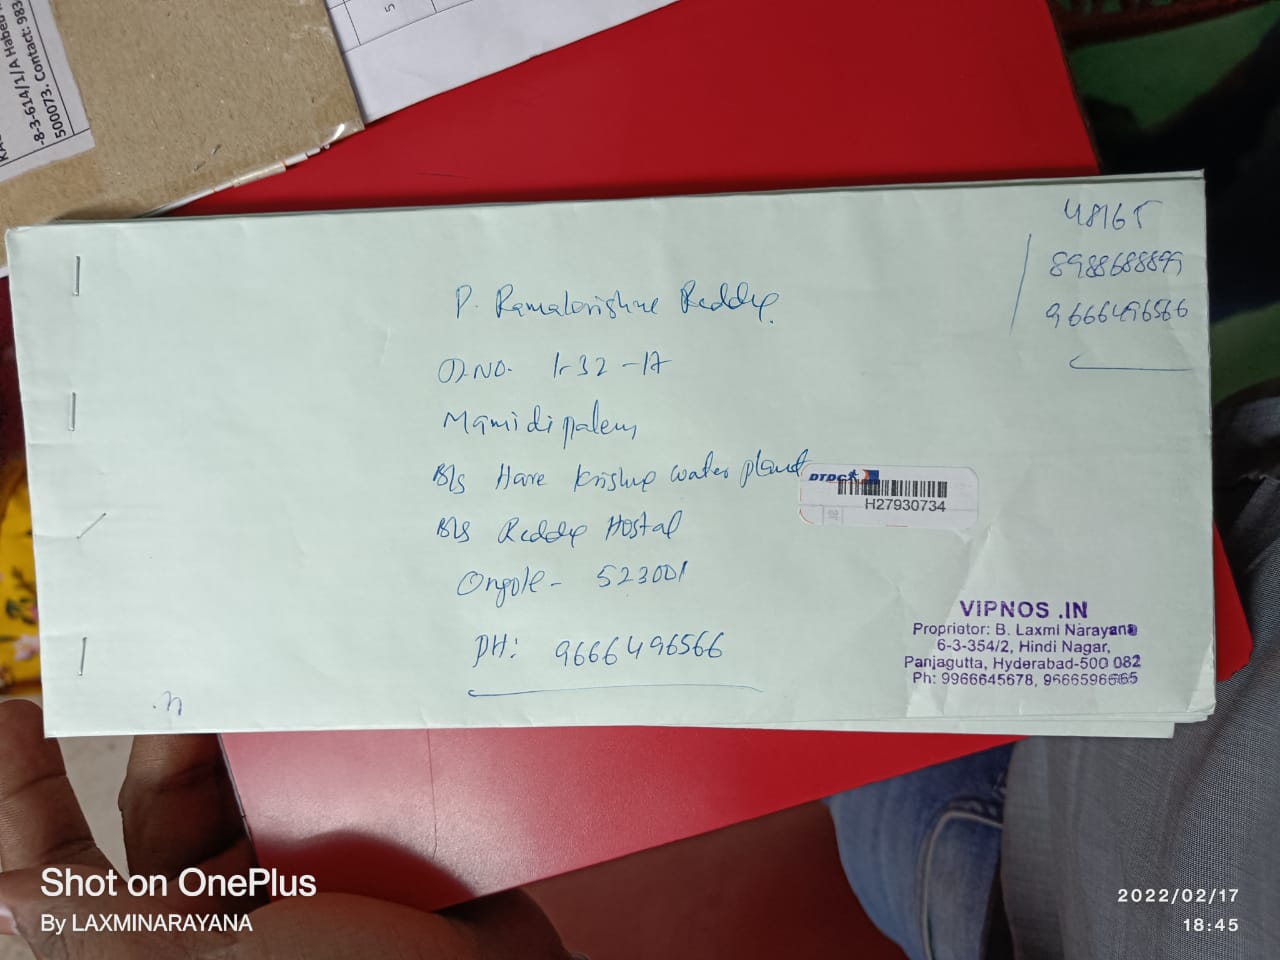 -8-3-614/1/1/A Habeeb
500073. Contact: 983
5
48165
8988688899
9666496566
P. Ramakrishne Reddy.
D.NO. 1-32-17
Mamidipalem
B/s Hare Krishne water plant
B/s Reddy Hostal
Ongole - 523001
PH: 9666496566
DTDC
H27930734
VIPNOS .IN
Proprietor: B. Laxmi Narayana
6-3-354/2, Hindi Nagar,
Panjagutta, Hyderabad-500 082
Ph: 9966645678, 9666596665
Shot on OnePlus
By LAXMINARAYANA
2022/02/17
18:45